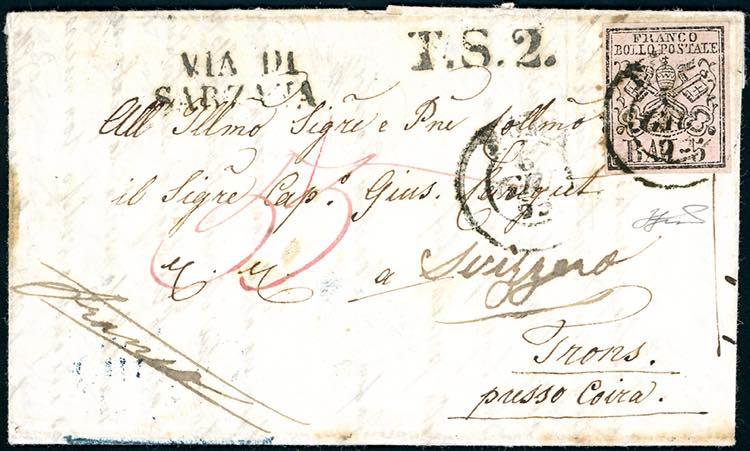 VIA DI
SARZANA
T.S.2.
FRANCO
BOLLO POSTALE
BAJ-5
All Illmo Sigre e Pne Collmo
il Sigre Capo. Gius.
a Svizzera
Trons.
presso Coira.
Franca